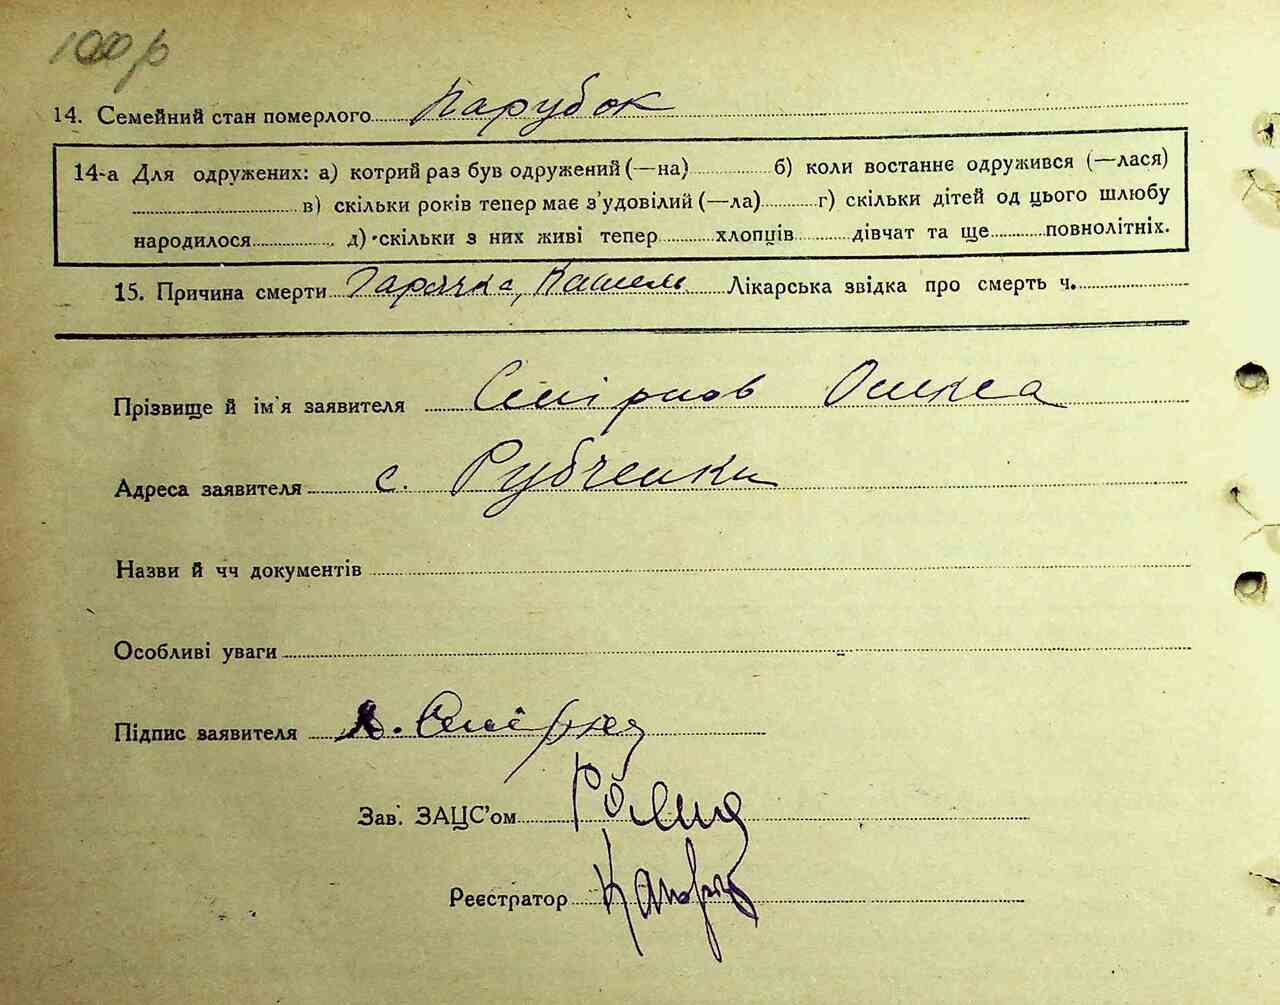 100 р
14. Семейний стан померлого Парубок
14-а Для одружених: а) котрий раз був одружений (—на) б) коли востаннє одружився (—лася)
в) скільки років тепер має з’удовілий (—ла) г) скільки дітей од цього шлюбу
народилося д) скільки з них живі тепер хлопців дівчат та ще повнолітніх.
15. Причина смерти Гарячка, Кашель Лікарська звідка про смерть ч.
Прізвище й ім’я заявителя Смірнов
Адреса заявителя с. Рубченки
Назви й чч документів
Особливі уваги
Підпис заявителя
Зав. ЗАЦС’ом
Реєстратор